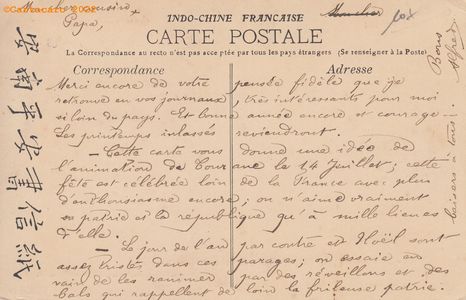 ©Cartacaro 2022
Papa
INDO-CHINE FRANCAISE
CARTE POSTALE
La Correspondance au recto n'est pas acceptée par tous les pays étrangers (Se renseigner à la Poste)
Correspondance
Adresse
Merci encore de votre pensée fidèle que je
retrouve en vos journaux, très intéressants pour moi
si loin du pays. Et bonne année encore et courage —
Les printemps reviendront.
— Cette carte vous donne une idée de
l'animation de Tourane le 14 Juillet; cette
fête est célébrée loin de la France avec plus
d'enthousiasme encore; on n'aime vraiment
sa patrie et la république qu'à mille lieues
d'elle.
— Le jour de l'an par contre et Noël sont
assez tristes dans ces parages; on essaie en
vain de les ranimer par des réveillons et des
bals qui rappellent de loin la frileuse patrie.
Bons
baisers à tous.
Alfred
安南